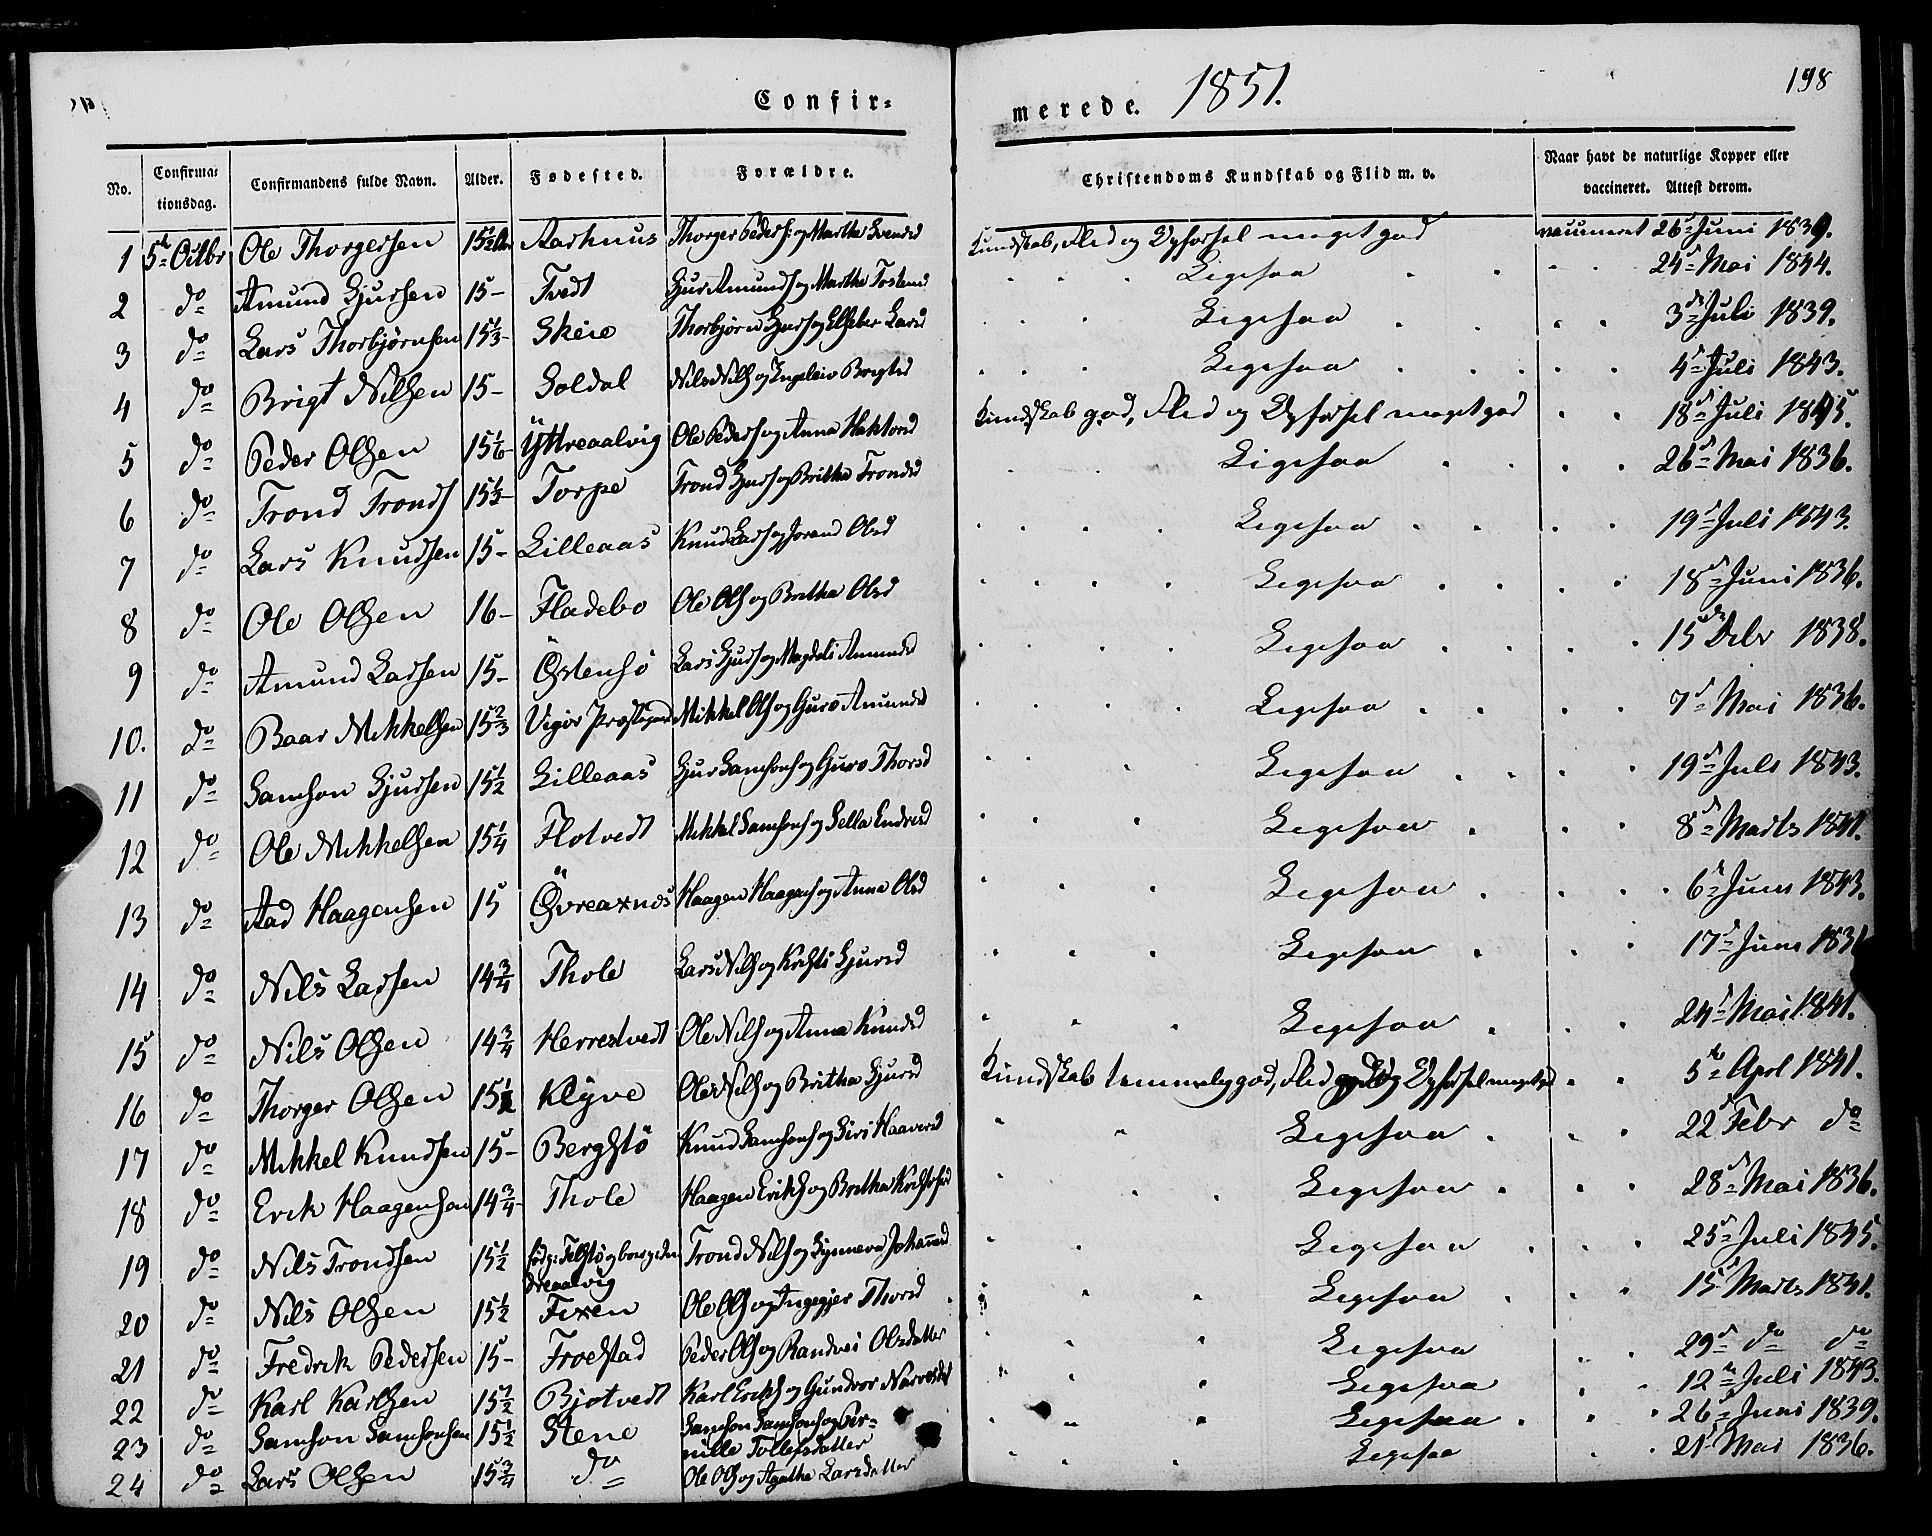 Confir-
merede. 1851. 198
No. Confirma-tionsdag. Confirmandens fulde Navn. Alder. Fødested. Forældre. Christendoms Kundskab og Flid m. v. Naar havt de naturlige Kopper eller vaccineret. Attest derom.
1 5te Octbr Ole Thorgersen 15½ Aar Aarhuus Thorger Peders: og Martha Svendsd Kundskab, Flid og Opførsel meget god vaccineret 26de Juni 1839.
2 do Amund Gjursen 15- Tvedt Gjur Amunds og Martha Tostensd Ligesaa 24de Mai 1844.
3 do Lars Thorbjørnsen 15⅓- Skeie Thorbjørn Gjurs og Elseber Larsd Ligesaa 3die Juli 1839.
4 do Brigt Nilssen 15- Soldal Nils Nils og Ingeleiv Brigtsd Ligesaa 4de Juli 1843.
5 do Peder Olsen 15⅙- Yttreaalvig Ole Peders og Anna Haktorsd Kundskab god, Flid og Opførsel meget god 18de Juli 1845.
6 do Trond Tronds 15½- Torpe Trond Gjurs og Britha Trondsd Ligesaa 26de Mai 1836.
7 do Lars Knudsen 15- Lilleaas Knud Lars og Jorand Olsd Ligesaa 19de Juli 1843.
8 do Ole Olsen 16- Fladebø Ole Ols og Britha Olsd Ligesaa 18de Juni 1836.
9 do Amund Larsen 15- Østensö Lars Gjurs og Magdeli Amundsd Ligesaa 15de Debr 1838.
10. do Baar Mikkelsen 15⅔ Vigør Præstegaard Mikkel Ols og Guro Amundsd Ligesaa 7de Mai 1836.
11 do Samson Gjursen 15½ Lilleaas Gjur Samsons og Guro Thorsd Ligesaa 19de Juli 1843.
12 do Ole Mikkelsen 15¼ Flotvedt Mikkel Samsons og Sella Endresd Ligesaa 8de Marts 1841.
13 do Aad Haagensen 15 Øvreaxnes Haagen Haagens og Anna Olsd Ligesaa 6te Juni 1843.
14 do Nils Larsen 14¾ Thole Lars Nils og Kristi Gjursd Ligesaa 17de Juni
15 do Nils Olsen 14¾ Herrestvedt Ole Nils og Anna Knudsd Ligesaa 24de Mai 1841.
16 do Thorger Olsen Klyve Ole Nils og Britha Gjursd Kundskab temmelig god, Flid og Opførsel meget god 5te April 1841.
17 do Mikkel Knudsen 15- Bergstö Knud Samsons og Siri Haaversd Ligesaa 22de Febr do
18 do Erik Haagensen 14¾- Thole Haagen Eriks og Britha Kristofersd Ligesaa 28de Mai 1836.
19 do Nils Trondsen 15½ Trond Nils og Synneva Johannesd Ligesaa 25de Juli 1845.
20 do Nils Olsen 15½ Fixen Ole Ols og Ingegjer Thorsd Ligesaa 15de Marts 1841.
21 do Fredrik Pedersen 15- Froestad Peder Ols og Randvei Olsdatter Ligesaa 29de do do
22 do Karl Karlsen 15½ Bjotvedt Karl Eriks og Gundvor Narvesdat Ligesaa 12te Juli 1843.
23 do Samson Samsonsen 15½ Stene Samson Samsons og Per-
nille Tollefsdatter Ligesaa 26de Juni 1839.
24 do Lars Olsen 15¾ do Ole Ols og Agatha Larsdatter Ligesaa 21de Mai 1836.